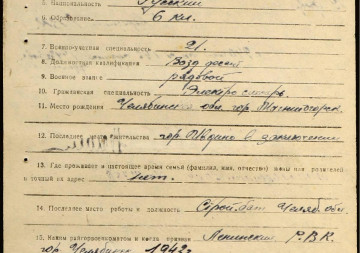 5. Национальность Русский
6. Образование 6 кл.
7. Военно-учетная специальность 21.
8. Должностная квалификация
9. Военное звание рядовой
10. Гражданская специальность
11. Место рождения Челябинск. обл. гор.
12. Последнее место жительства гор. в заключении
13. Где проживает в настоящее время семья (фамилия, имя, отчество) жены или родителей
и точный их адрес нет.
14. Последнее место работы и должность Стройбат Челяб. обл.
15. Каким райгорвоенкоматом и когда призван Ленинским Р.В.К.
гор. Челябинск 1942 г.